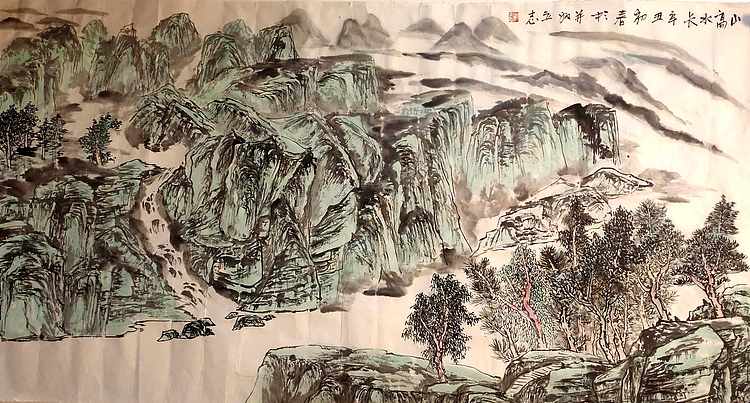 山高水长辛丑初春於并州孟志